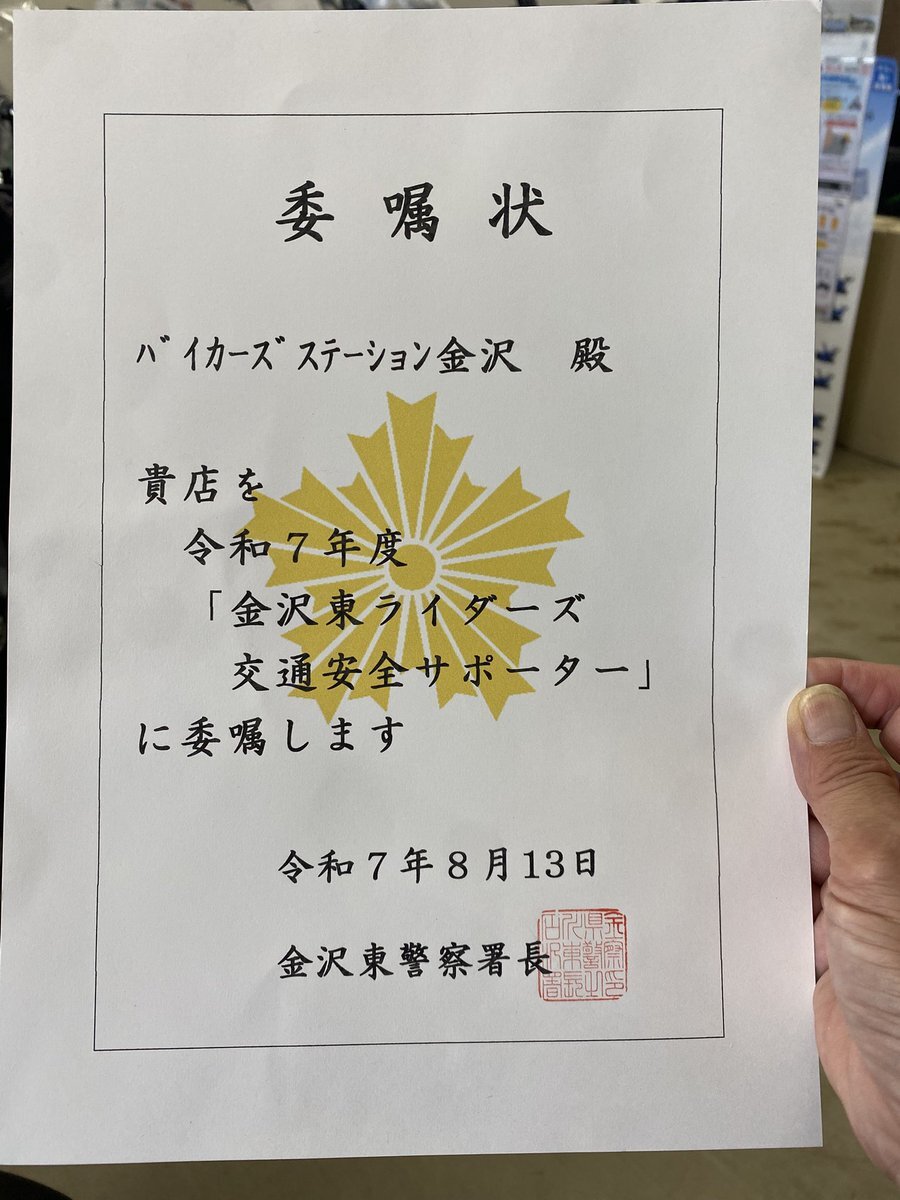 委嘱状
ﾊﾞｲｶｰｽﾞｽﾃｰｼｮﾝ金沢　殿
貴店を
令和７年度
「金沢東ライダーズ
交通安全サポーター」
に委嘱します
令和７年８月13日
金沢東警察署長